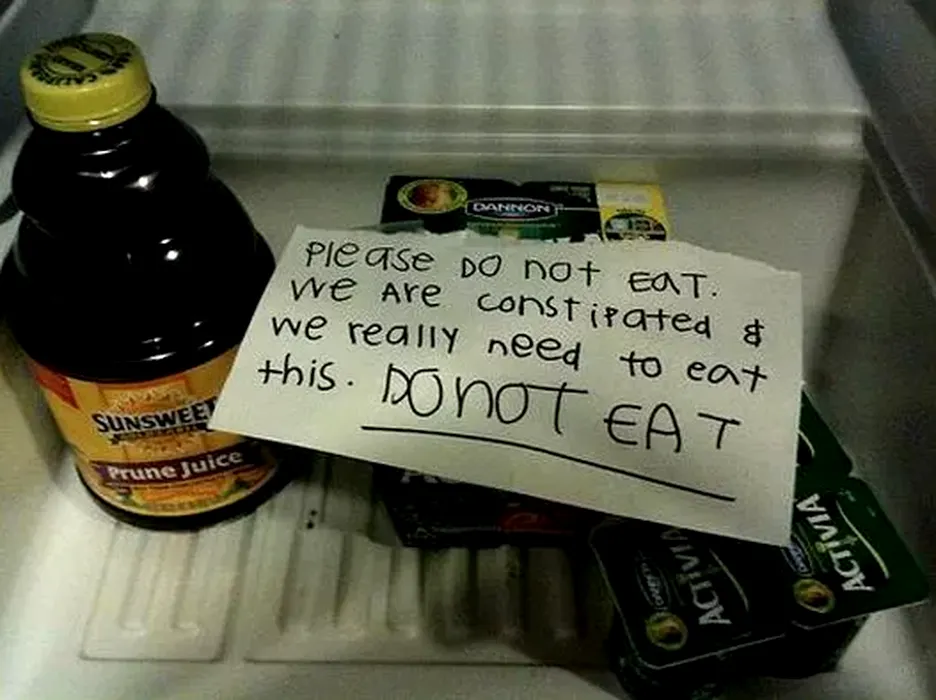 DANNON
Please DO not EAT.
We Are constipated &
we really need to eat
this. DO NOT EAT
SUNSWEET
Prune Juice
ACTIVIA
ACTIVIA